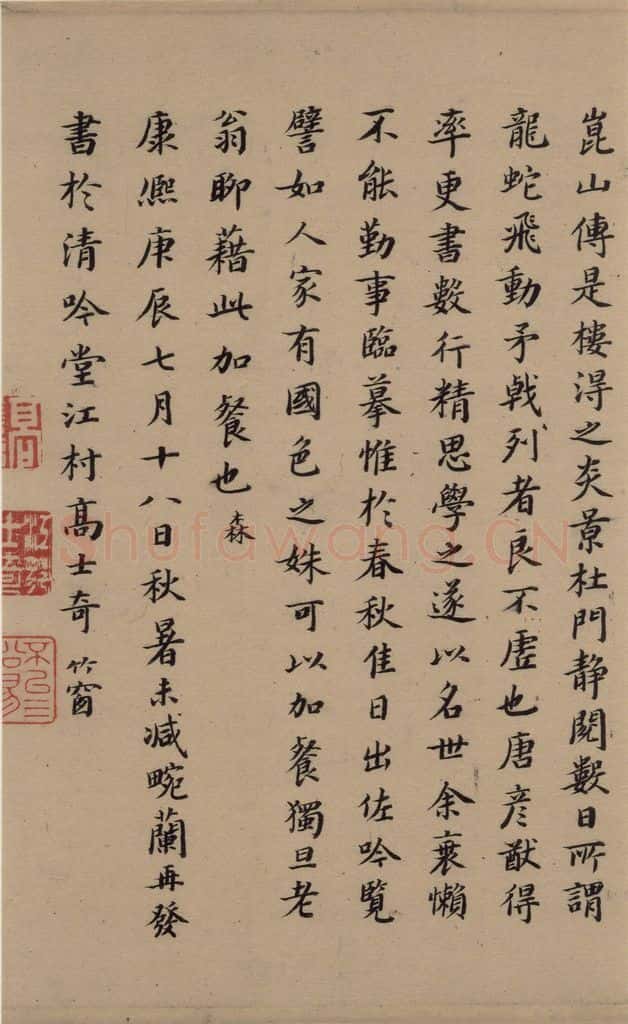 崑山傳是樓淂之炎景杜門静閱數日所謂
龍蛇飛動矛戟列者良不虛也唐彥猷得
率更書數行精思學之遂以名世余衰懶
不能勤事臨摹惟於春秋佳日出佐吟覽
譬如人家有國色之姝可以加餐獨旦老
翁聊藉此加餐也 森
康熈庚辰七月十八日秋暑未减畹蘭再發
書於清吟堂江村高士奇 竹窗
Shufawang.CN